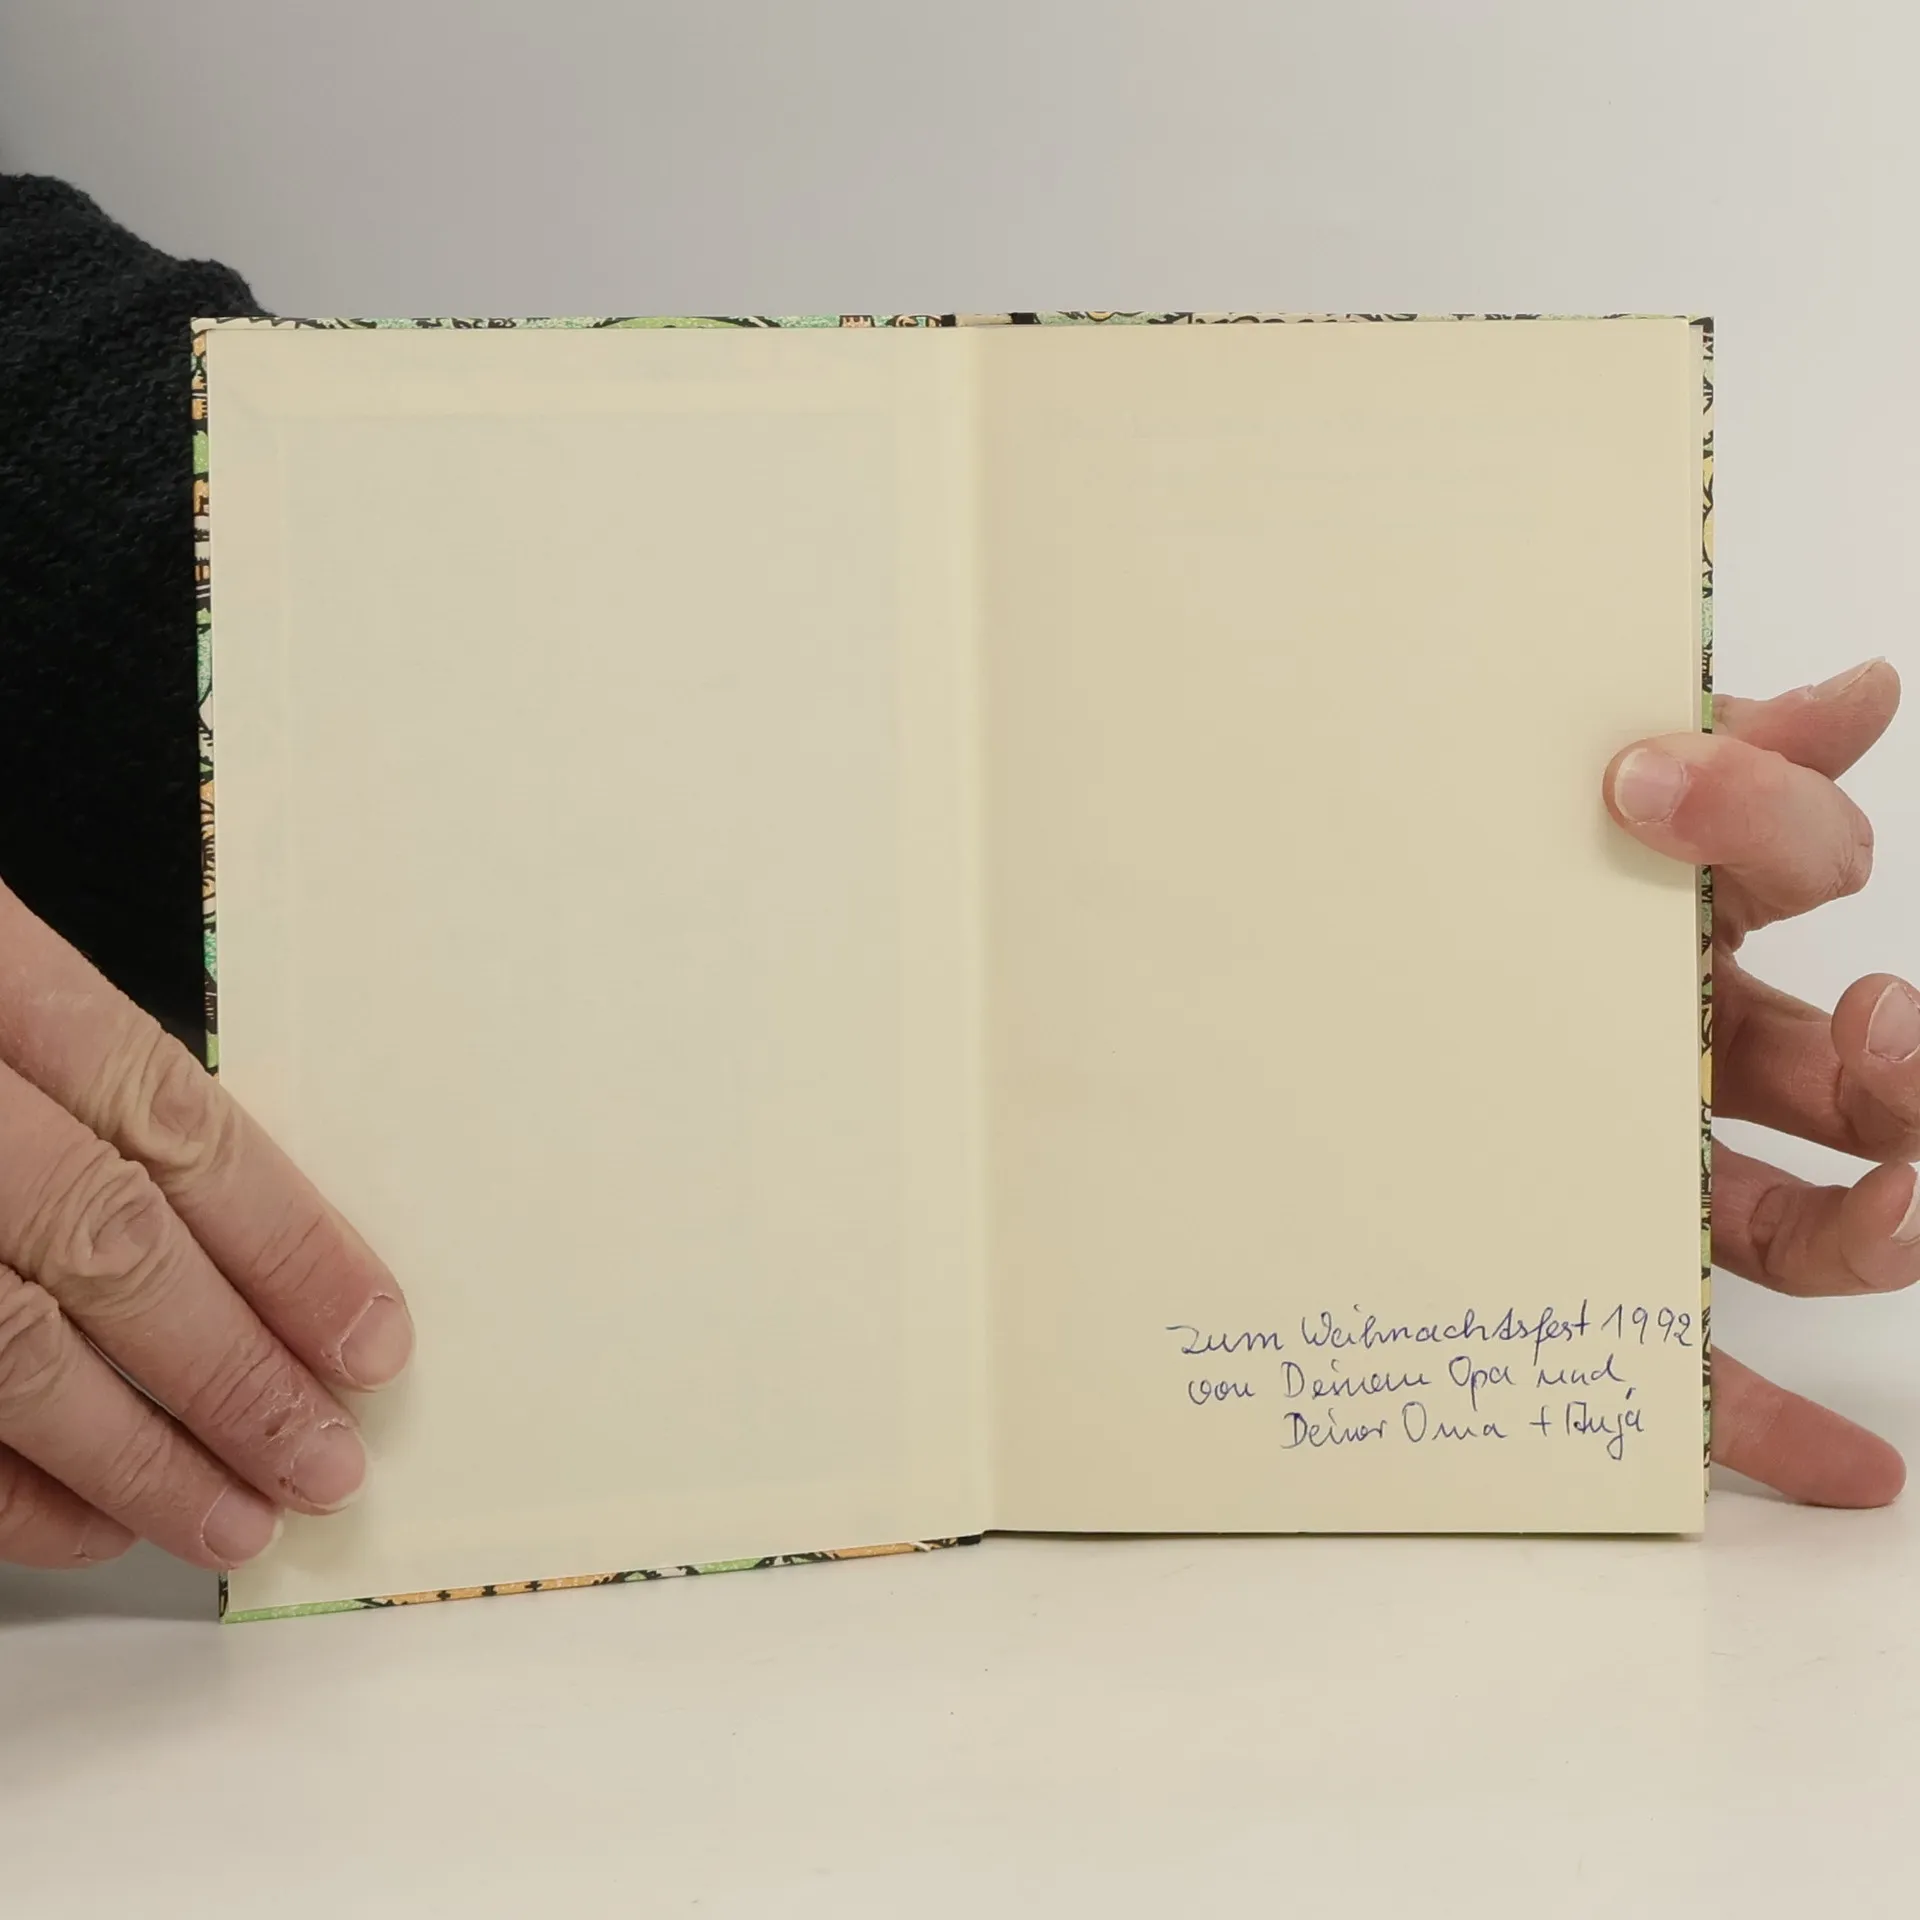 Zum Weihnachtsfest 1992
von Deinem Opa und
Deiner Oma + Anja